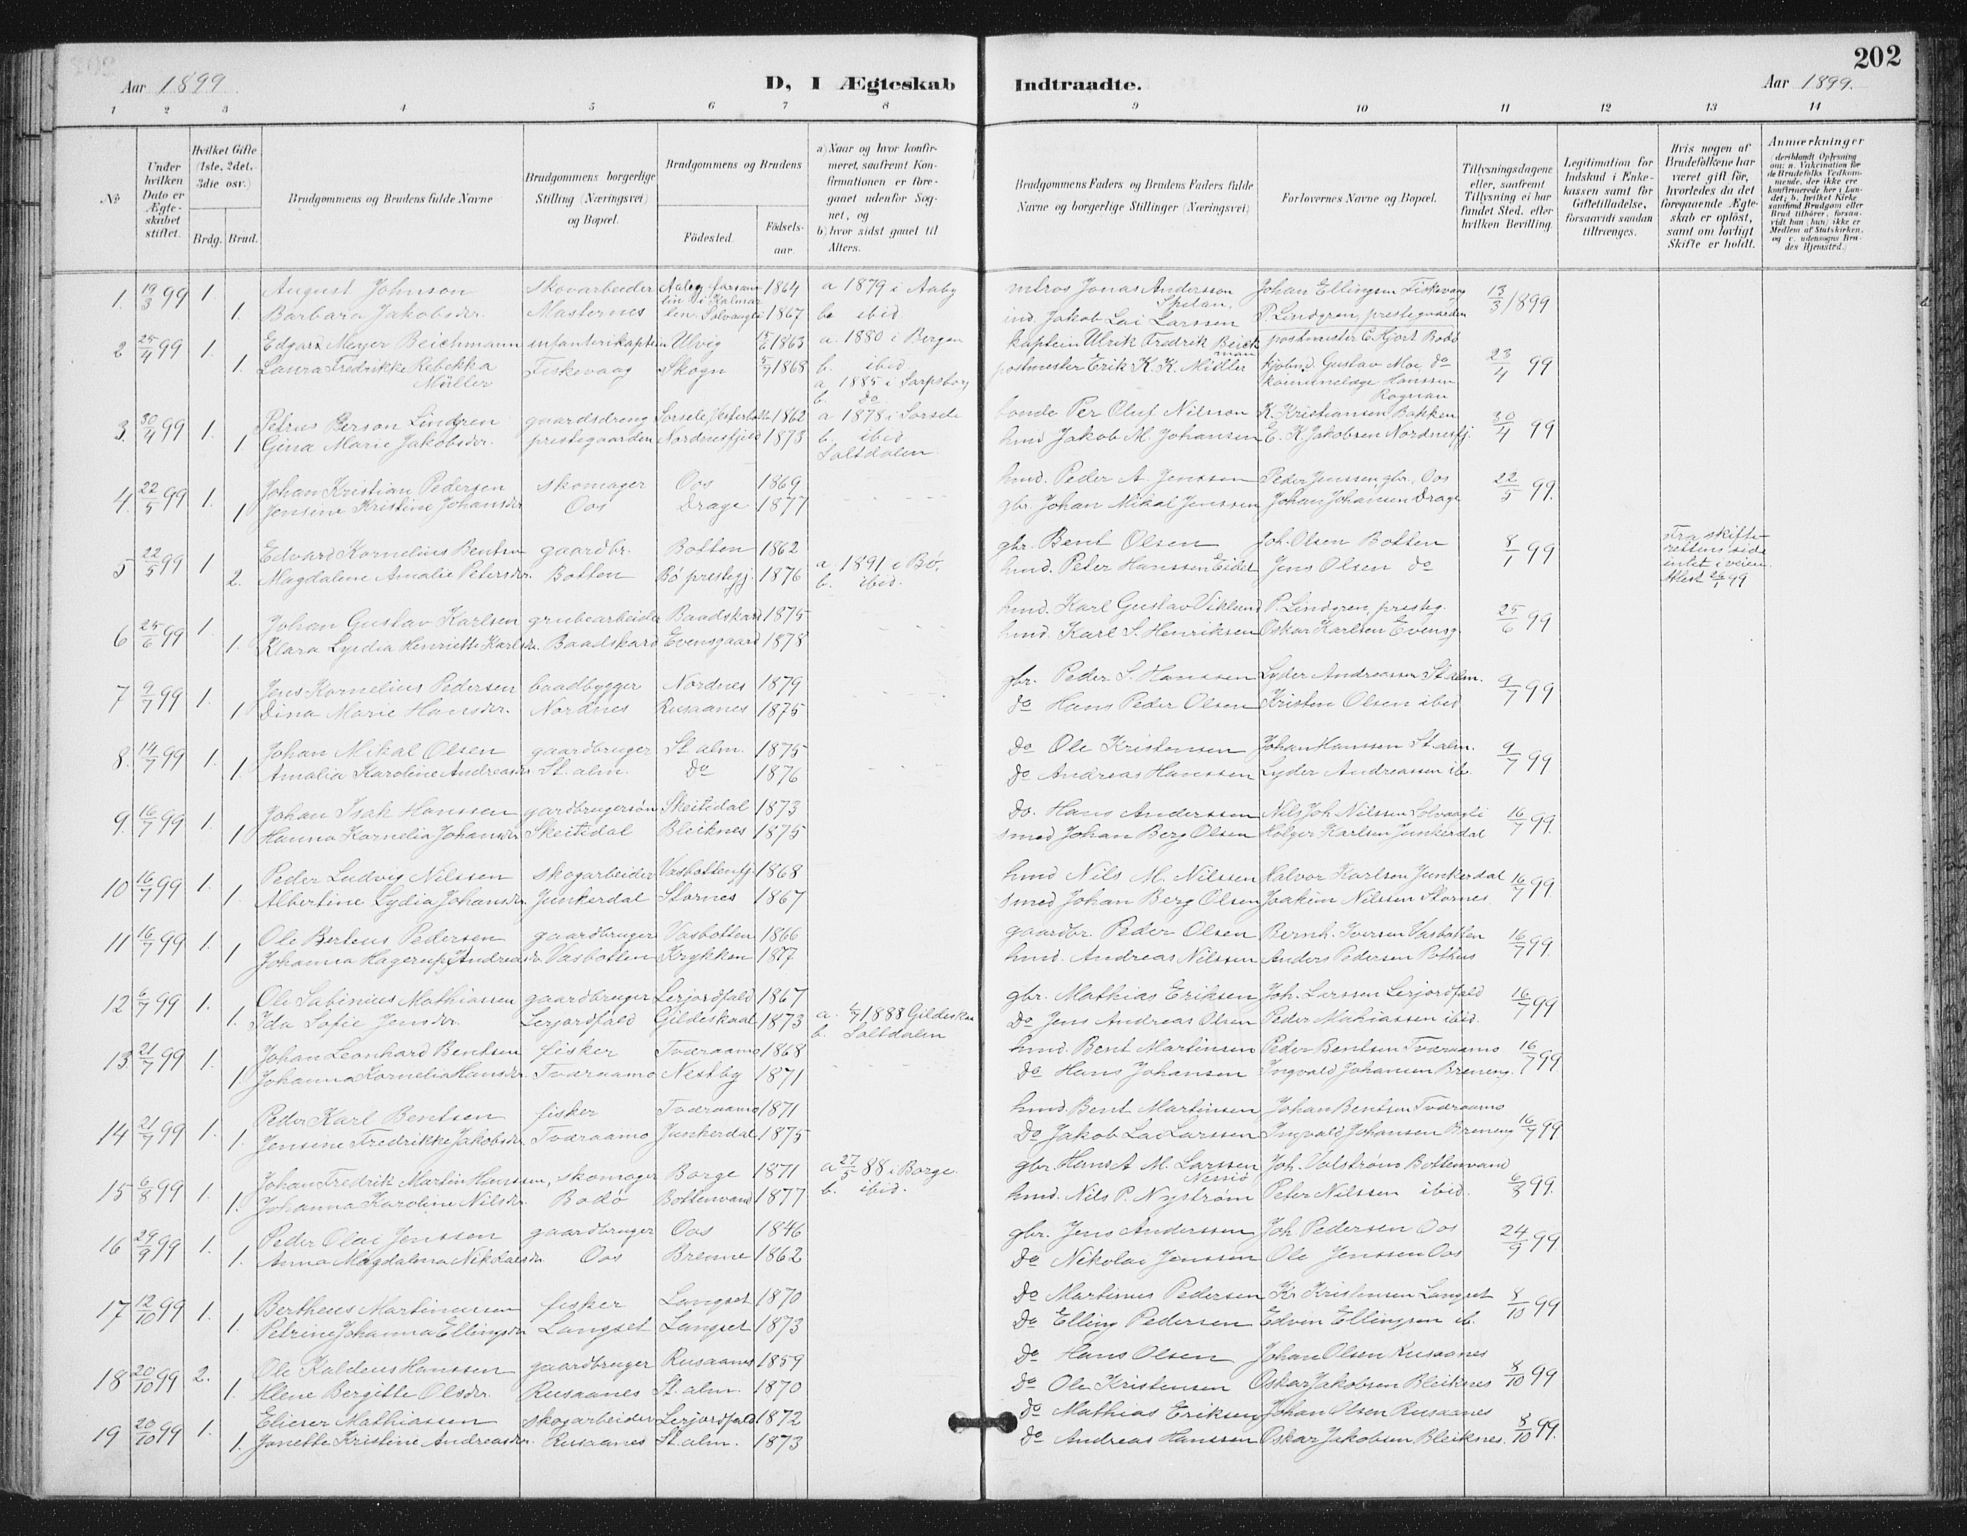 202
Aar 1899
D, I Ægteskab
Indtraadte.
Aar 1899.
1 2 3 4 5 6 7 8 9 10 11 12 13 14
No
Under hvilken Dato er Ægteskabet stiftet.
Hvilket Gifte (1ste, 2det, 3die osv.)
Brdg. Brud.
Brudgommens og Brudens fulde Navne
Brudgommens borgerlige Stilling (Næringsvei) og Bopæl.
Brudgommens og Brudens
Fødested.
Fødselsaar.
a) Naar og hvor konfirmeret, saafremt Konfirmationen er foregaaet udenfor Sognet, og
b) hvor sidst gaaet til Alters.
Brudgommens Faders og Brudens Faders fulde Navne og borgerlige Stillinger (Næringsvei)
Forlovernes Navne og Bopæl.
Tillysningsdagene eller, saafremt Tillysning ei har fundet Sted, efter hvilken Bevilling.
Legitimation for Indskud i Enkekassen samt for Giftetilladelse, forsaavidt saadan tiltrænges.
Hvis nogen af Brudefolkene har været gift før, hvorledes da det foregaaende Ægteskab er opløst, samt om lovligt Skifte er holdt.
Anmærkninger
1. 19/3 99 1. August Johnson skovarbeider 1864 a 1879 i Aaby mtros Jonas Andersson Johan Ellingsen Fiskevaag 13/3 1899
1. Barbara Jakobsdr. Masternes 1867 b. ibid ind. Jakob Lai Larssen P. Lindgren, prestegaarden
2 25/4 99 1. Edgar Meyer Beichmann infanterikaptein Ulvig 1863 a. 1880 i Bergen kaptein Ulrik Fredrik Beichman postmester C. Hjort Bodø 23/4 99
1. Laura Fredrikke Rebekka Müller Fiskevaag Skogn 1868 b. ibid postmester Erik K. K. Müller kjøbmd. Gustav Moe do
a. 1885 i Sarpsborg kommunelæge Hanssen
b. do Rognan
3. 30/4 99 1. Petrus Person Lindgren gaardsdreng 1862 a 1878 i Sorsele bonde Per Oluf Nilsson K. Kristiansen Bakken 30/4 99
1 Gina Marie Jakobsdr. prestegaarden Nordnesfjeld 1873 b. ibid hmd Jakob M. Johansen E. K. Jakobsen Nordnesfj.
Saltdalen
4. 22/5 99 1. Johan Kristian Pedersen skomager Oos 1869 hmd. Peder A. Jenssen Peder Jenssen gbr. Oos 22/5 99.
1 Jensine Kristine Johansdr Oos Drage 1877 gbr. Johan Nikal Jenssen Johan Johansen Drage
5 22/5 99 1 Edvard Kornelius Bentsen gaardbr. Botten 1862 gbr. Bent Olsen Joh. Olsen Botten 8/1 99 Fra skifterettens side intet i veien.
2. Magdalene Amalie Petersdr. Botten Bø prestegj. 1876 a. 1891 i Bø. b. ibid. hmd. Peter Hanssen Eidet Jens Olsen do
6 25/6 99 1. Johan Gustav Karlsen grubearbeider Baadskard 1875 hmd. Karl Gustav Viklund P. Lindgren, presteg. 25/6 99
1. Klara Lydia Henriette Karlsdr. Baadskard Evensgaard 1878 hmd. Karl S. Henriksen Oskar Karlsen Evensg.
7 9/7 99 1. Jens Kornelius Pedersen baadbygger Nordnes 1879 gbr. Peder S. Hanssen Lyder Andreassen St. alm. 9/7 99
1 Dina Marie Hansdr. Nordnes Rusaanes 1875 do Hans Peder Olsen Kristen Olsen ibid
8. 14/7 99 1. Johan Mikal Olsen gaardbruger St. alm. 1875 do Ole Kristensen Johan Hanssen St. alm. 9/7 99
1 Amalia Karoline Andreasdr. St. alm. do 1876 do Andreas Hanssen Lyder Andreassen ib.
9. 16/7 99 1. Johan Isak Hanssen gaardbrugersøn Skeitidal 1873 do. Hans Anderssen Nils Joh. Nilssen Solvaagli 16/7 99.
1 Hanna Kornelia Johansdr Skeitidal Bleiknes 1875 smed Johan Berg Olsen Holger Karlsen Junkerdal
10 16/7 99 1. Peder Ludvig Nilssen skogarbeider Vasbottenfj. 1868 hmd Nils M. Nilssen Halvor Karlsen Junkerdal 16/7 99.
1 Albertine Lydia Johansdr. Junkerdal Stornes 1867 smed Johan Berg Olsen Joakim Nilssen Stornes
11 16/7 99 1. Ole Berteus Pedersen gaardbruger Vasbotten 1866 gaardbr. Peder Olsen Bernh. Iversen Vasbotten 16/7 99.
1 Johanna Hagerup Andreasdr Vasbotten Krykken 1877 hmd. Andreas Nilssen Anders Pedersen Pothus
12 6/7 99 1. Ole Sabinius Mathiassen gaardbruger Lerjordfald 1867 gbr. Mathias Eriksen Joh. Larssen Lerjordfald 16/7 99
1. Ida Sofie Jensdr. Lerjordfald Gildeskaal 1873 a. 1888 Gildeskaa b. Saltdalen do Jens Andreas Olsen Peder Mathiassen ibid.
13. 21/7 99 1. Johan Leonhard Bentsen fisker Tværaamo 1868 hmd. Bent Martinsen Peder Bentsen Tværaamo 16/7 99
1 Johanna Kornelia Hansdr. Tværaamo Nestby 1871 do Hans Johansen Ingvald Johansen Breneng.
14 21/7 99 1. Peder Karl Bentsen fisker Tværaamo 1871 hmd. Bent Martinsen Johan Bentsen Tværaamo 16/7 99
1. Jensine Fredrikke Jakobsdr. Tværaamo Junkerdal 1875 do Jakob Lai Larssen Ingvald Johansen Breneng
15 6/8 99 1. Johan Fredrik Martin Hanssen, skomager Borge 1871 a 27/5 88 i Borge. gbr. Hans A. M. Larssen Joh. Valstrøm Bottenvand 6/8 99.
1. Johanna Karoline Nilsdr. Bodø Bottenvand 1877 b. ibid. hmd. Nils P. Nystrøm Peter Nilssen ibid.
16 29/9 99 1. Peder Olai Jenssen gaardbruger Oos 1846 gbr. Jens Anderssen Joh. Pedersen Oos 24/9 99.
1. Anna Magdalena Nikolaisdr Oos Brenne 1862 do Nikolai Jenssen Ole Jenssen Oos
17 12/10 99 1. Bertheus Martinussen fisker Langset 1870 do Martinus Pedersen Kr. Kristensen Langset 8/10 99
1. Petrine Johanna Ellingsdr. Langset Langset 1873 do Elling Pedersen Edvin Ellingsen ib.
18 20/10 99 2. Ole Kaldeus Hanssen gaardbruger Rusaanes 1859 do Hans Olsen Johan Olsen Rusaanes 8/10 99
1. Elene Bergitte Olsdr. Rusaanes St. alm. 1870 do Ole Kristensen Oskar Jakobsen Bleiknes
19 20/10 99 1. Elieser Mathiassen skogarbeider Lerjordfald 1872 do Mathias Eriksen Johan Olsen Rusaanes 8/10 99.
1. Janette Kristine Andreasdr. Rusaanes St. alm. 1873 do Andreas Hanssen Oskar Jakobsen Bleiknes.